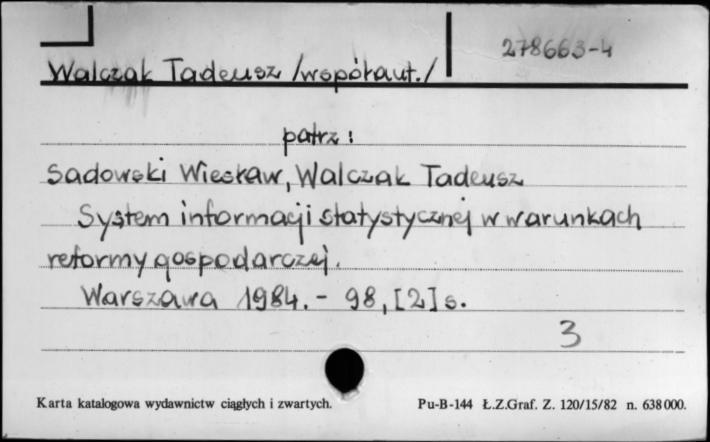 278663-4
Walczak Tadeusz /współaut./
patrz:
Sadowski Wiesław, Walczak Tadeusz
System informacji statystycznej w warunkach
reformy gospodarczej.
Warszawa 1984.- 98, [2] s.
3
Karta katalogowa wydawnictw ciągłych i zwartych.
Pu-B-144 Ł.Z.Graf. Z. 120/15/82 n. 638 000.